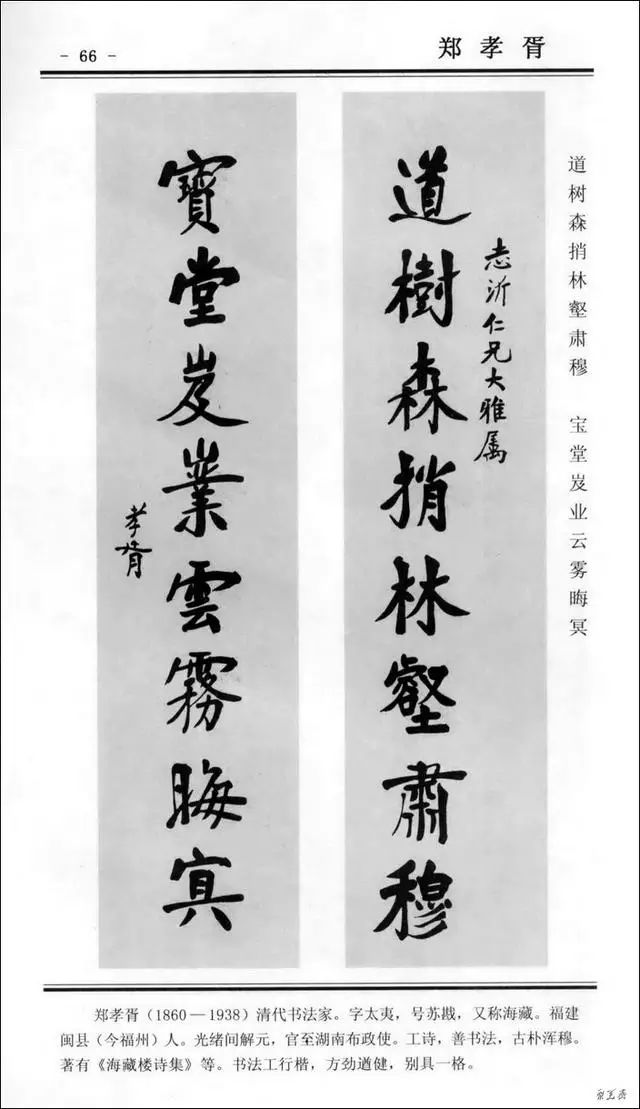 - 66 -
郑孝胥
道树森捎林壑肃穆 宝堂岌业云雾晦冥
道樹森捎林壑肅穆
志沂仁兄大雅属
寶堂岌業雲霧晦冥
孝胥
郑孝胥（1860—1938）清代书法家。字太夷，号苏戡，又称海藏。福建
闽县（今福州）人。光绪间解元，官至湖南布政使。工诗，善书法，古朴浑穆。
著有《海藏楼诗集》等。书法工行楷，方劲遒健，别具一格。